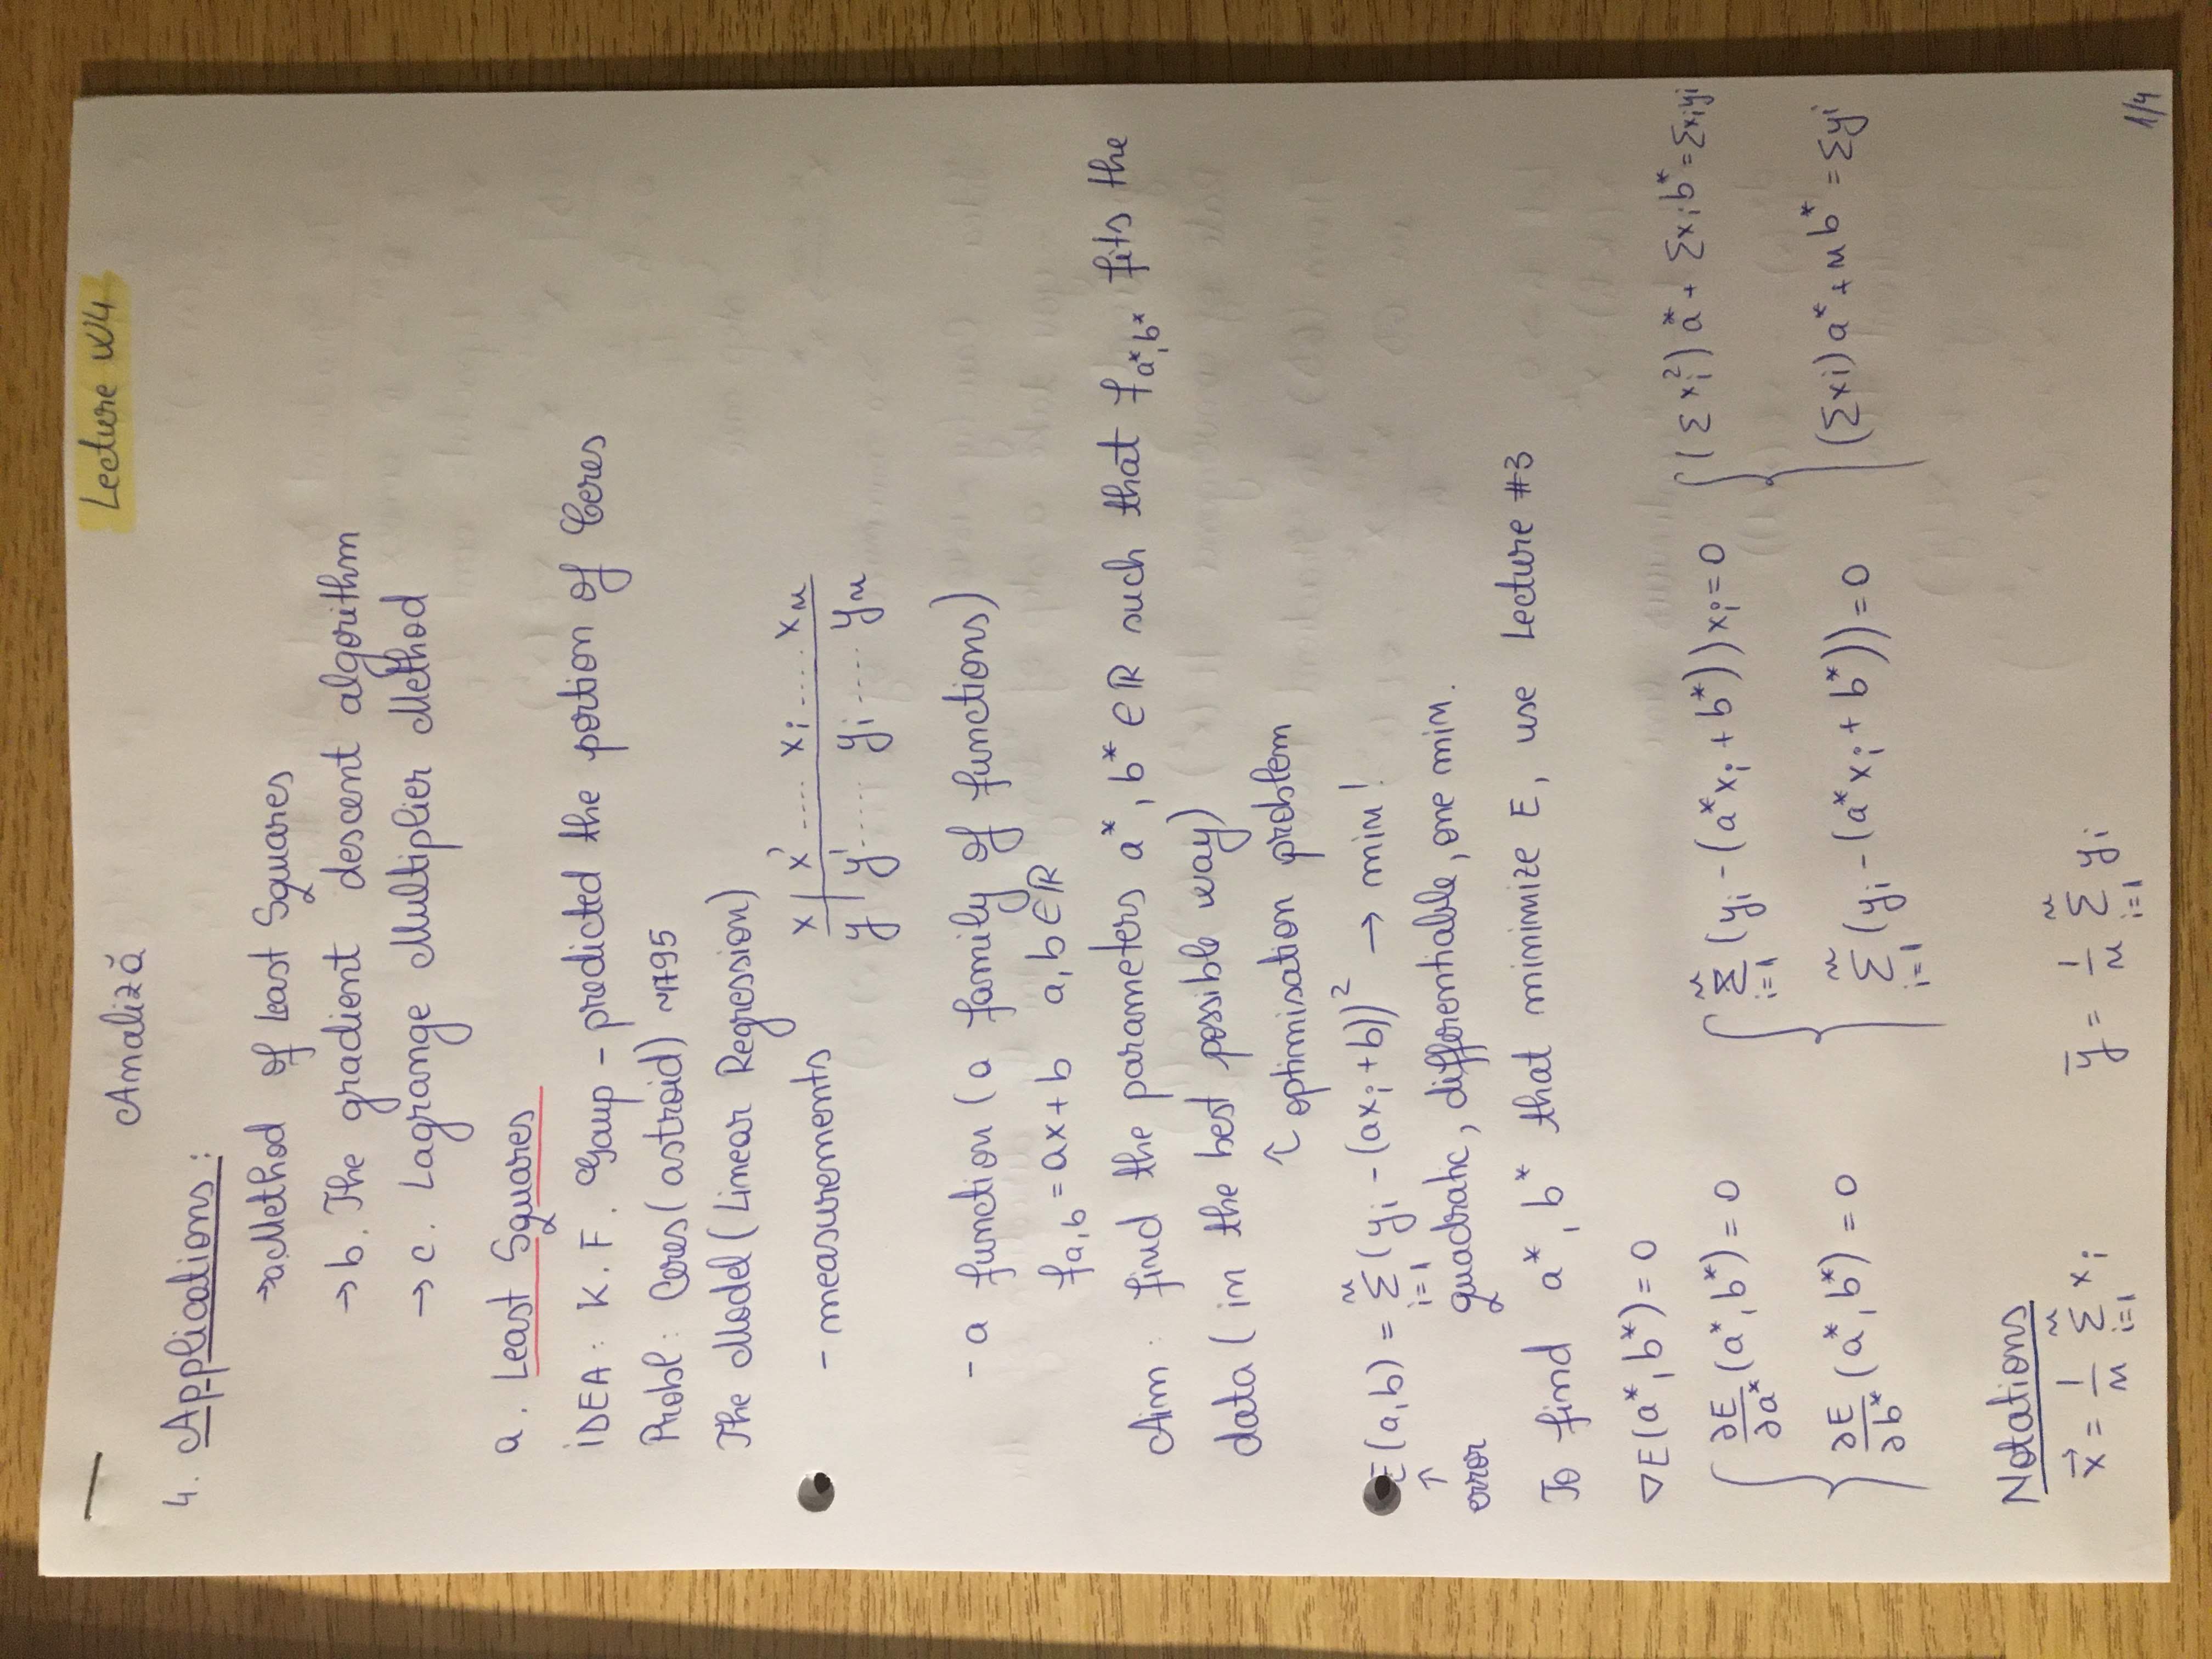 Analiză
Lecture W4
4. Applications :
→ a. Method of Least Squares
→ b. The gradient descent algorithm
→ c. Lagrange Multiplier Method
a. Least Squares
IDEA : K. F. Gaup - predicted the portion of Ceres
Probl : Ceres (astroid) ~1795
The Model (Linear Regression)
- measurements
x | x' .... xᵢ .... xₙ
y | y' ..... yᵢ .... yₙ
- a function (a family of functions)
f_{a,b} = ax + b a, b ∈ ℝ
Aim : find the parameters a*, b* ∈ ℝ such that f_{a*,b*} fits the
data (in the best possible way)
↑ optimisation problem
E(a,b) = Σ_{i=1}^{n} (yᵢ - (axᵢ + b))² → min !
↑
error
quadratic, differentiable, one min.
To find a*, b* that minimize E, use Lecture #3
∇E(a*, b*) = 0
{ ∂E/∂a* (a*, b*) = 0
∂E/∂b* (a*, b*) = 0
{ Σ_{i=1}^{n} (yᵢ - (a*xᵢ + b*))xᵢ = 0
Σ_{i=1}^{n} (yᵢ - (a*xᵢ + b*)) = 0
{ (Σxᵢ²) a* + Σxᵢ b* = Σxᵢyᵢ
(Σxi) a* + n b* = Σyi
Notations
x⃗ = 1/n Σ_{i=1}^{n} xᵢ
ȳ = 1/n Σ_{i=1}^{n} yᵢ
1/4